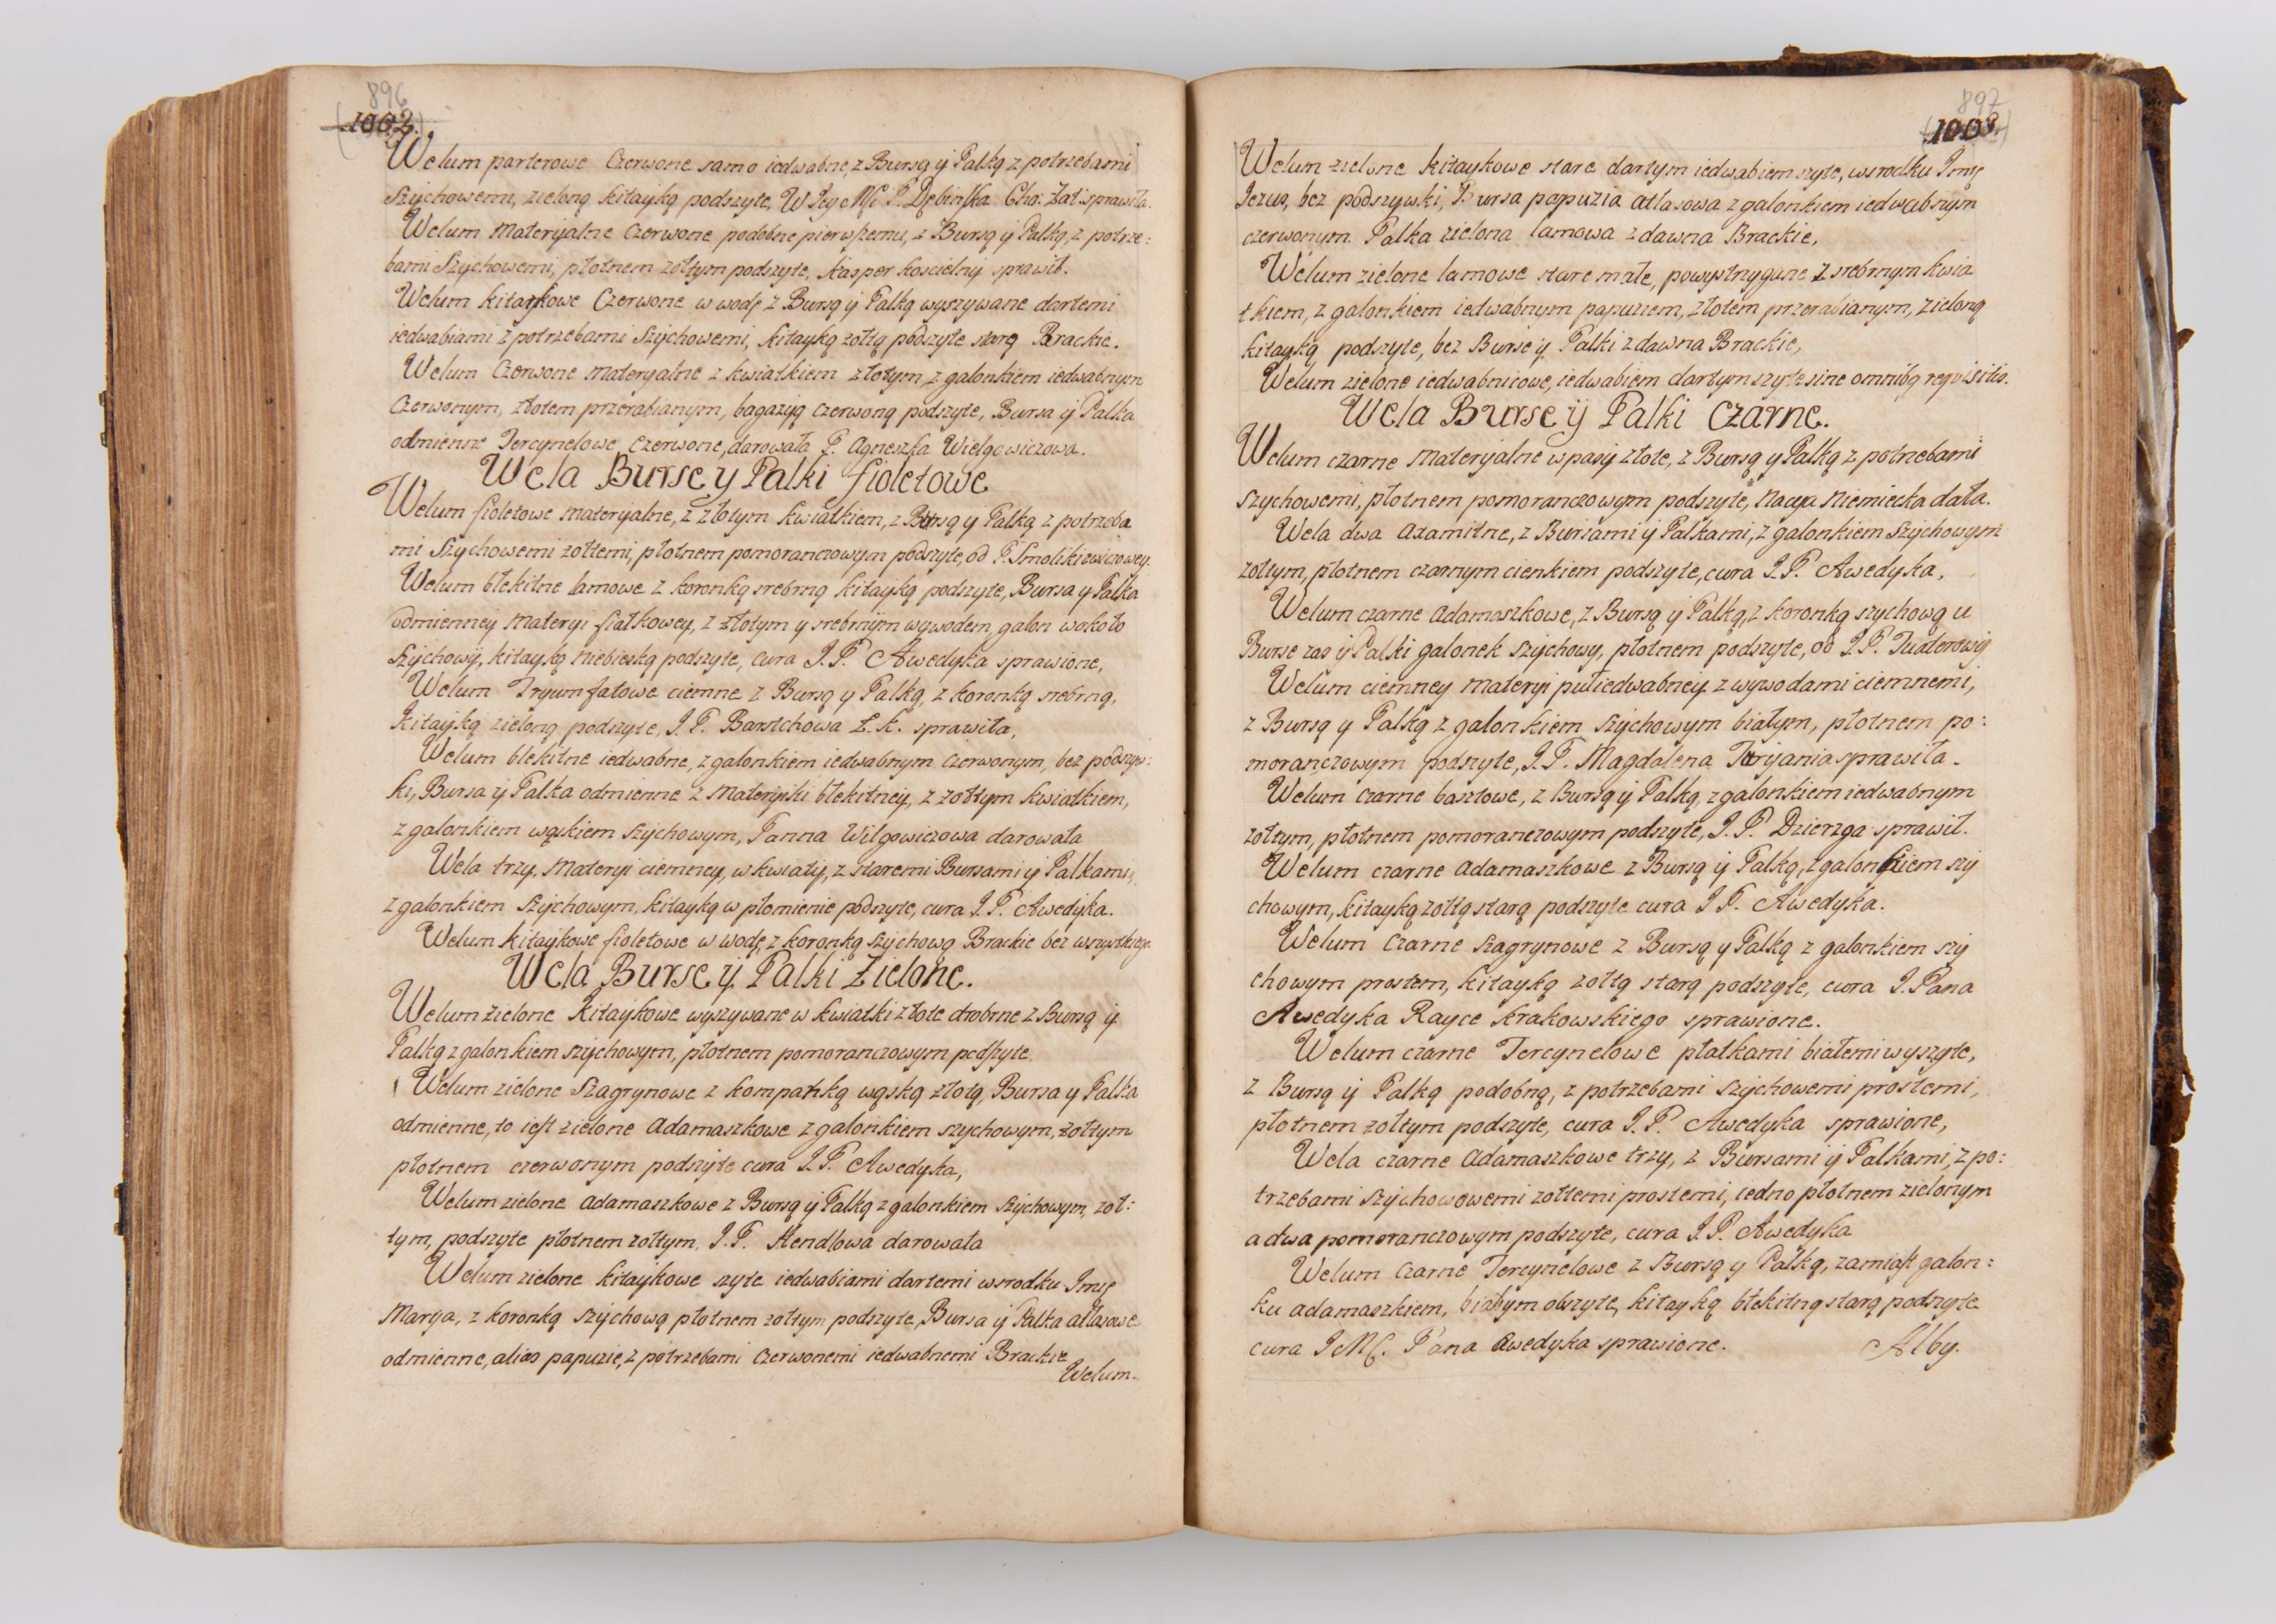 896
1002.
Welum parterowe Czerwone samo iedwabne, z Bursą ÿ Palką z potrzebami
Szychowemi, zieloną kitayką podszyte, W Jey Mći P. Dębinska Cho: Zat: sprawiła.
Welum Materyalne Czerwone podobne pierwszemu, z Bursą ÿ Palką, z potrze:
bami Szychowemi, płotnem żołtym podszyte, Kasper koscielny sprawił.
Welum kitaykowe Czerwone w wodę z Bursą ÿ Palką wyszywane dartemi
iedwabiami z potrzebami Szychowemi, kitayką żołtą podszyte starą Brackie.
Welum Czerwone materyalne z kwiatkiem złotym, z galonkiem iedwabnym
Czerwonym, złotem przerabianym, bagazyą czerwoną podszyte, Bursa ÿ Palka
odmienne Tercynelowe Czerwone, darowała P. Agneszka Wielgowiczowa.
Wela Burse y Palki fioletowe
Welum fioletowe materyalne, z złotym kwiatkiem, z Bursą y Palką z potrzeba
mi Szychowemi żołtemi, płotnem pomoranczowym podszyte, od P. Smolikiewiczowey.
Welum błekitne lamowe z koronką srebrną kitayką podszyte, Bursa y Palka
odmienney Materyi fiałkowey, z złotym y srebrnym wywodem, galon wokoło
Szychowy, kitayką niebieską podszyte, cura J.P. Awedyka sprawione,
Welum Tryumfałowe ciemne z Bursą y Palką, z koronką srebrną,
kitayką zieloną podszyte, J.P. Barstchowa Ł.K. sprawiła,
Welum blekitne iedwabne, z galonkiem iedwabnym Czerwonym, bez podszyw:
ki, Bursa ÿ Palka odmienne z Materyiki błekitney, z żołtym kwiatkiem,
z galonkiem wąskiem szychowym, Panna Wilgowiczowa darowała
Wela trzy, Materyi ciemney, w kwiaty, z staremi Bursami ÿ Palkami,
z galonkiem Szychowym, kitayką w płomienie podszyte, cura J.P. Awedyka.
Welum kitaykowe fioletowe w wodę, z koronką szychową Brackie bez wszystkiego
Wela Burse ÿ Palki Zielone.
Welum zielone Kitaykowe wyszywane w kwiatki złote drobrne z Bursą ÿ
Palką z galonkiem szychowym, płotnem pomoranczowym podszyte.
Welum zielone Szagrynowe z kompanką wąską złotą, Bursa y Palka
odmienne, to iest zielone Adamaszkowe z galonkiem szychowym, żołtym
płotnem czerwonym podszyte cura J.P. Awedyka,
Welum zielone Adamaszkowe z Bursą ÿ Palką z galonkiem Szychowym, żoł:
tym, podszyte płotnem żołtym, J.P. Hendlowa darowała
Welum zielone kitaykowe szyte iedwabiami dartemi wsrodku Imię
Marya, z koronką szychową płotnem żołtym podszyte, Bursa ÿ Palka atlasowe
odmienne, alias papuzie, z potrzebami Czerwonemi iedwabnemi Brackie
Welum.
897
1003.
Welum zielone kitaykowe stare dartym iedwabiem szyte, wsrodku Imię
Jezus, bez podszywki, Bursa papuzia atlasowa z galonkiem iedwabnym
czerwonym. Palka zielona lamowa zdawna Brackie,
Welum zielone lamowe stare małe, powystrzygane z srebrnym kwia
tkiem, z galonkiem iedwabnym papuziem, złotem przerabianym, zieloną
kitayką podszyte, bez Burse ÿ Palki zdawna Brackie,
Welum zielone iedwabnicowe, iedwabiem dartym szyte sine omnibq requisitis.
Wela Burse ÿ Palki Czarne.
Welum czarne Materyalne wpasy złote, z Bursą y Palką z potrzebami
szychowemi, płotnem pomoranczowym podszyte, Nacya Niemiecka dała.
Wela dwa Axamitne, z Bursami ÿ Palkami, z galonkiem Szychowym
żołtym, płotnem czarnym cienkiem podszyte, cura J.P. Awedyka,
Welum czarne Adamaszkowe, z Bursą ÿ Palką, z koronką szychową u
Burse zas ÿ Palki galonek szychowy, płotnem podszyte, od J.P. Tuaterowy
Welum ciemney Materyi pułiedwabney z wywodami ciemnemi,
z Bursą y Palką z galonkiem szychowym białym, płotnem po:
moranczowym podszyte, J.P. Magdalena Toryania sprawiła.
Welum czarne baszłowe, z Bursą ÿ Palką, z galonkiem iedwabnym
żołtym, płotnem pomoranczowym podszyte, J.P. Dzierzga sprawił.
Welum czarne Adamaszkowe z Bursą ÿ Palką, z galonkiem szy
chowym, kitayką żołtą starą podszyte cura J P. Awedyka.
Welum Czarne szagrynowe z Bursą y Palką z galonkiem szy
chowym prostem, kitayką żołtą starą podszyte, cura J. Pana
Awedyka Rayce krakowskiego sprawione.
Welum czarne Tercynelowe płatkami białemi wyszyte,
z Bursą ÿ Palką podobną, z potrzebami szychowemi prostemi,
płotnem żołtym podszyte, cura J.P. Awedyka sprawione,
Wela czarne Adamaszkowe trzy, z Bursami ÿ Palkami, z po:
trzebami szychowowemi żołtemi prostemi, iedno płotnem zielonym
a dwa pomoranczowym podszyte, cura J.P. Awedyka
Welum Czarne Tercynelowe z Bursą y Palką, zamiast galon:
ku adamaszkiem, białym obszyte, kitayką błekitną starą podszyte
cura J Mć. Pana Awedyka sprawione.
Alby.